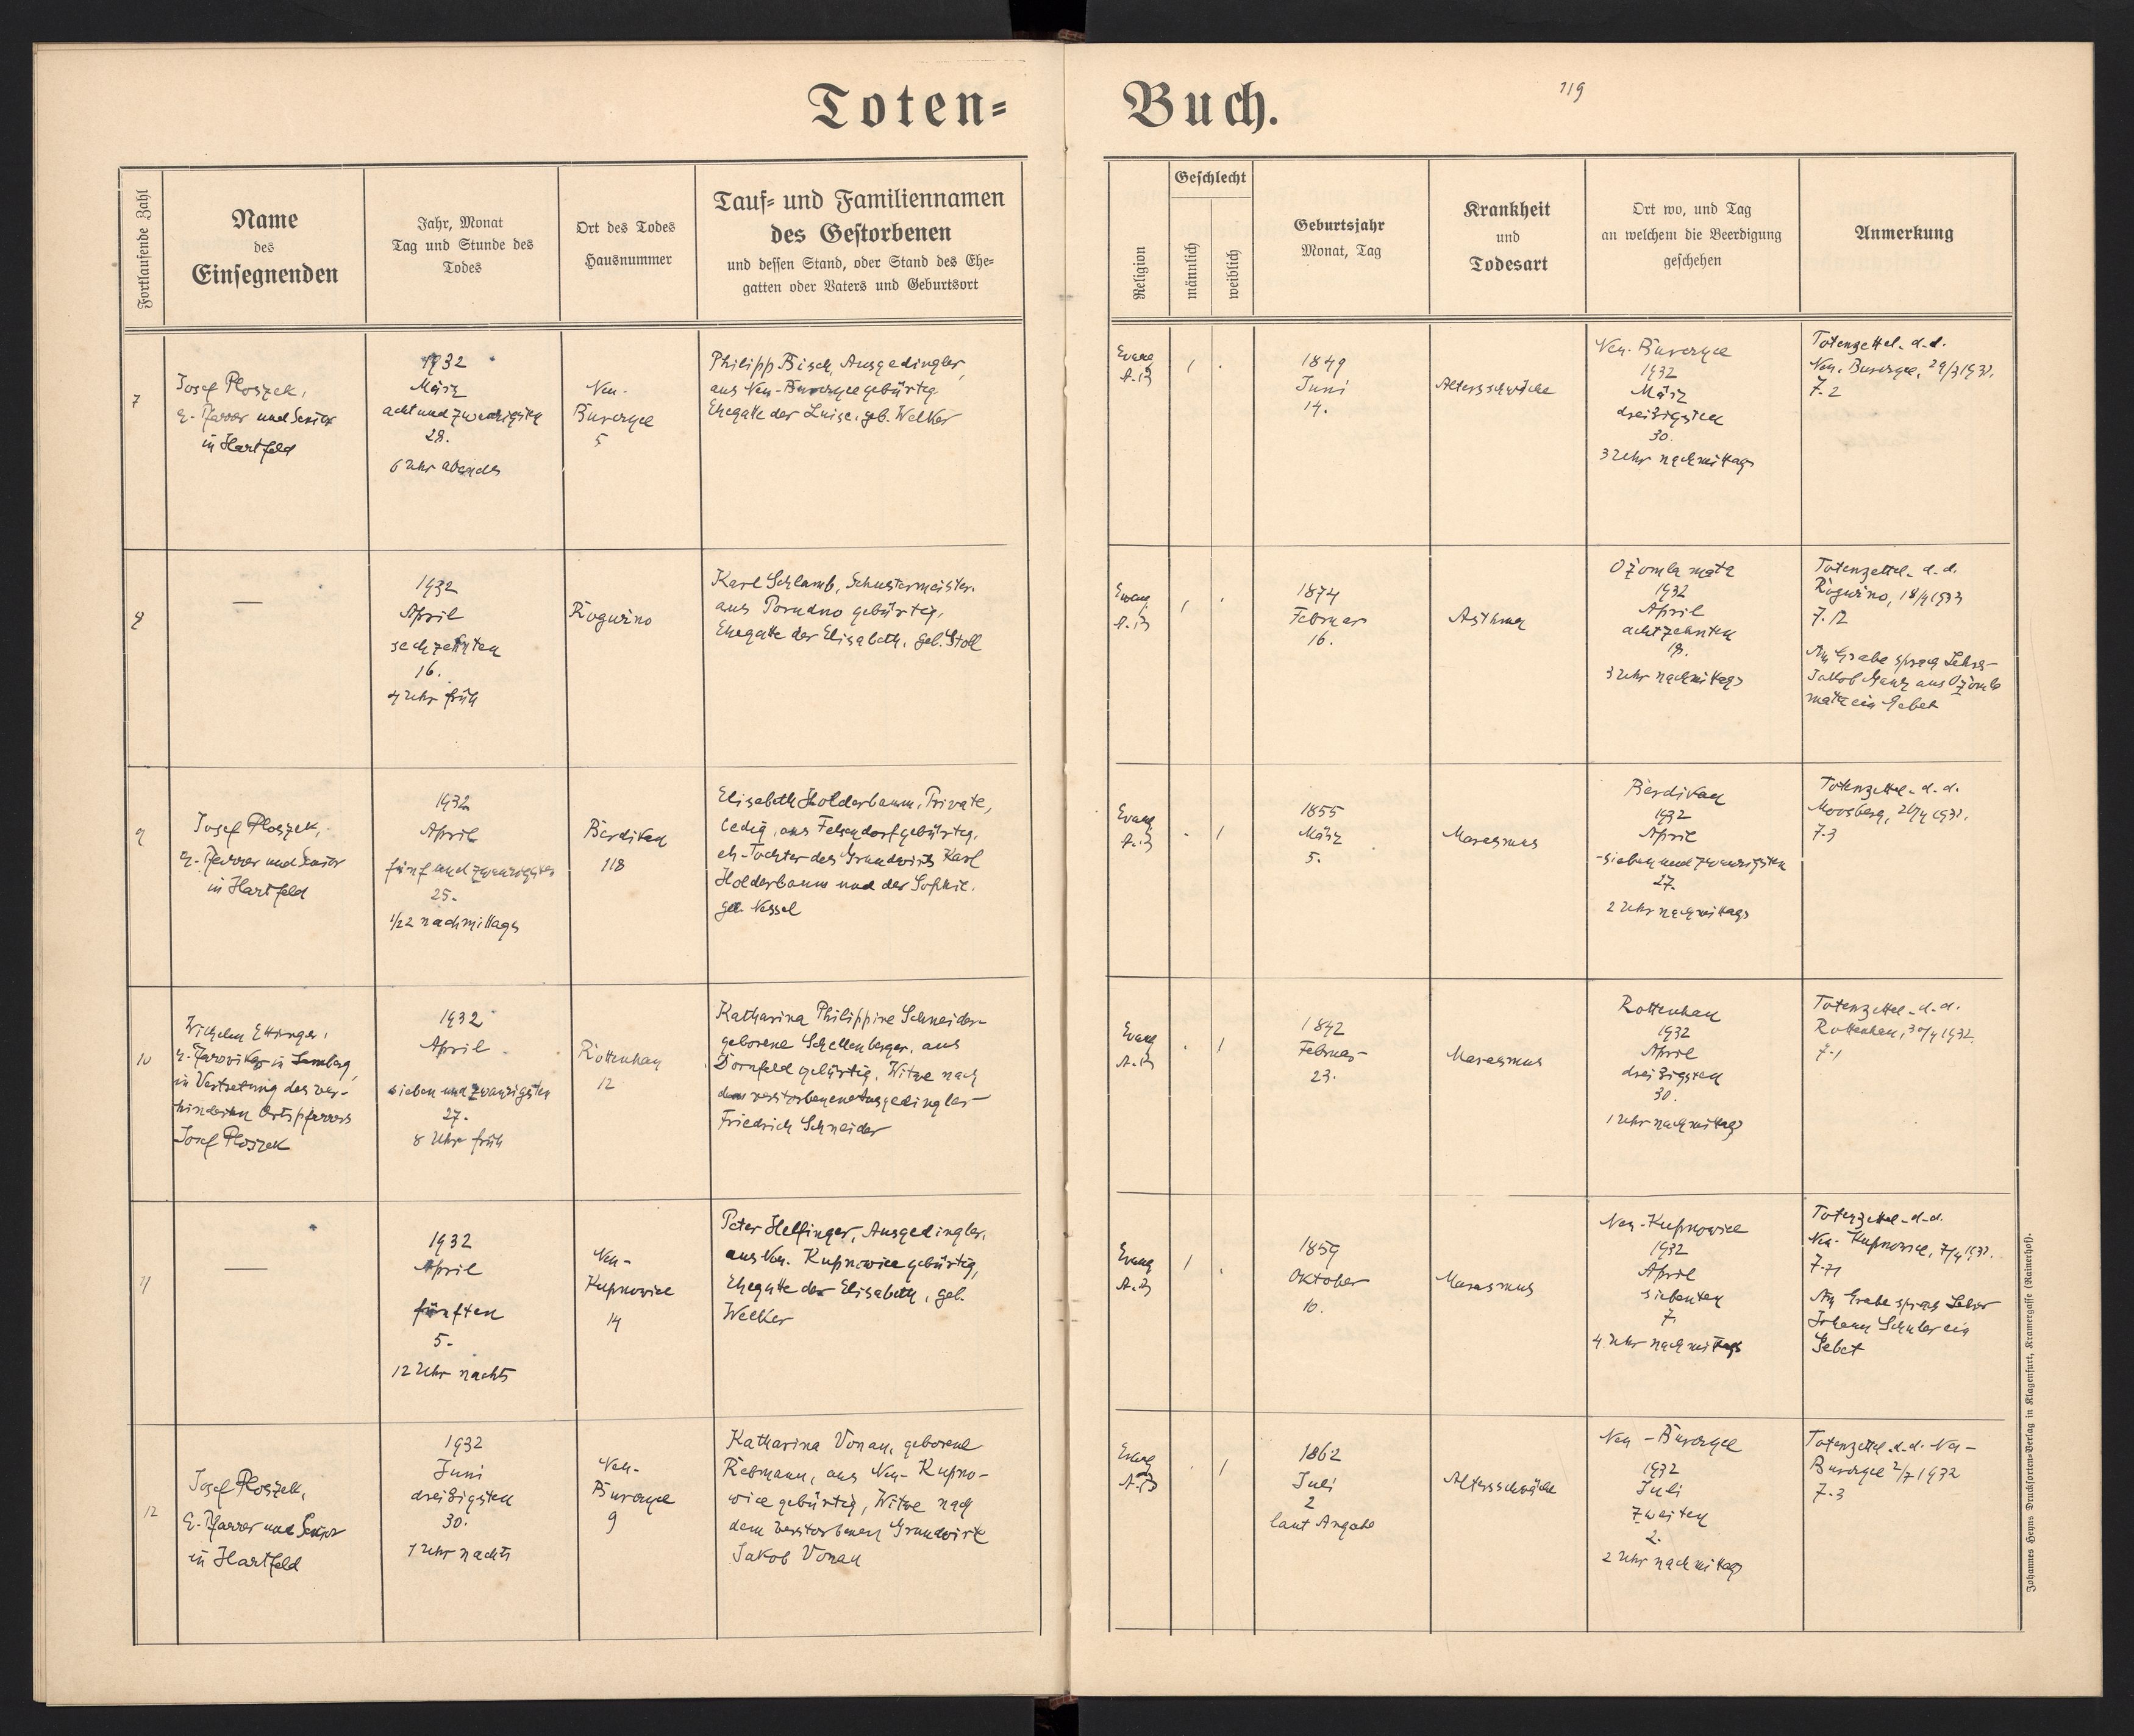 Toten= Buch.
119
Fortlaufende Zahl
Name
des
Einsegnenden
Jahr, Monat
Tag und Stunde des
Todes
Ort des Todes
Hausnummer
Tauf= und Familiennamen
des Gestorbenen
und dessen Stand, oder Stand des Ehe=
gatten oder Vaters und Geburtsort
Religion
Geschlecht
männlich
weiblich
Geburtsjahr
Monat, Tag
Krankheit
und
Todesart
Ort wo, und Tag
an welchem die Beerdigung
geschehen
Anmerkung
7
Josef Ploszek,
e. Pfarrer und Senior
in Hartfeld
1932
März
achtundzwanzigsten
28.
6 Uhr abends
Neu-
Burczyce
5
Philipp Bisch, Ausgedingler,
aus Neu-Burczyce gebürtig
Ehegatte der Luise, geb. Welker
Evang
A.B
1
1849
Juni
14.
Altersschwäche
Neu-Burczyce
1932
März
dreißigsten
30.
3 Uhr nachmittags
Totenzettel d.d.
Neu-Burczyce, 29/3 1932.
Z. 2
8
—
1932
April
sechzehnten
16.
4 Uhr früh
Roguźno
Karl Schlamb, Schustermeister,
aus Porudno gebürtig,
Ehegatte der Elisabeth, geb. Stoll
Evang
A.B
1
1874
Februar
16.
Asthma
Ożomla mała
1932
April
achtzehnten
18.
3 Uhr nachmittags
Totenzettel d.d.
Roguźno, 18/4 1932
Z. 12
Am Grabe sprach Lehrer
Jakob Manz aus Ożomla
mała ein Gebet
9
Josef Ploszek,
e. Pfarrer und Senior
in Hartfeld
1932
April
fünfundzwanzigsten
25.
1/2 2 nachmittags
Berdikau
118
Elisabeth Holderbaum, Private,
ledig, aus Felsendorf gebürtig,
eh. Tochter des Grundwirts Karl
Holderbaum und der Sophie,
geb. Nessel
Evang
A.B
1
1855
März
5.
Marasmus
Berdikau
1932
April
siebenundzwanzigsten
27.
2 Uhr nachmittags
Totenzettel d.d.
Moosberg, 26/4 1932.
Z. 3
10
Wilhelm Ettinger,
e. Pfarrvikar in Lemberg,
in Vertretung des ver-
hinderten Ortspfarrers
Josef Ploszek
1932
April
siebenundzwanzigsten
27.
8 Uhr früh
Rottenhan
12
Katharina Philippine Schneider
geborene Schellenberger, aus
Dornfeld gebürtig, Witwe nach
dem verstorbenen Ausgedingler
Friedrich Schneider
Evang
A.B
1
1842
Februar
23.
Marasmus
Rottenhan
1932
April
dreißigsten
30.
1 Uhr nachmittags
Totenzettel d.d.
Rottenhan, 30/4 1932.
Z. 1
11
—
1932
April
fünften
5.
12 Uhr nachts
Neu-
Kupnowice
14
Peter Helfinger, Ausgedingler,
aus Neu-Kupnowice gebürtig,
Ehegatte der Elisabeth, geb.
Welker
Evang
A.B
1
1859
Oktober
10.
Marasmus
Neu-Kupnowice
1932
April
siebenten
7.
4 Uhr nachmittags
Totenzettel d.d.
Neu-Kupnowice, 7/4 1932.
Am Grabe sprach Lehrer
Johann Schuler ein
Gebet
12
Josef Ploszek,
e. Pfarrer und Senior
in Hartfeld
1932
Juni
dreißigsten
30.
1 Uhr nachts
Neu-
Burczyce
9
Katharina Vonau, geborene
Rebmann, aus Neu-Kupno-
wice gebürtig, Witwe nach
dem verstorbenen Grundwirt
Jakob Vonau
Evang
A.B
1
1862
Juli
2
laut Angabe
Altersschwäche
Neu-Burczyce
1932
Juli
zweiten
2.
2 Uhr nachmittags
Totenzettel d.d. Neu-
Burczyce 2/7 1932
Z. 3
Johannes Heyns Drucksorten-Verlag in Klagenfurt, Kramergasse (Rainerhof).